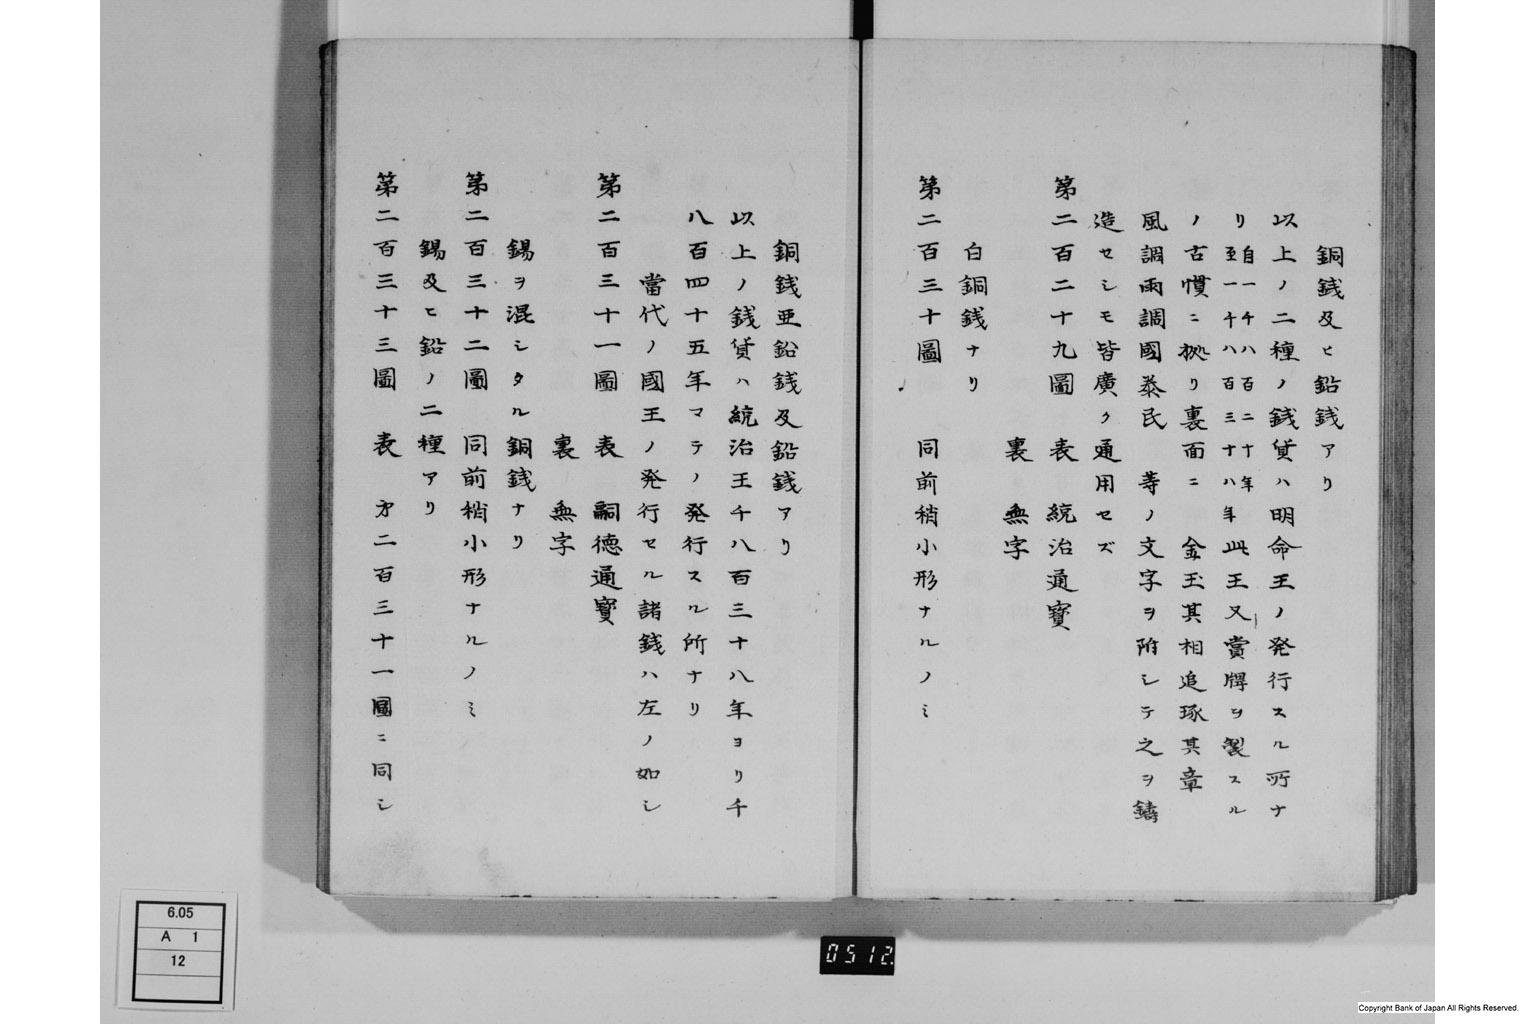 銅銭及ヒ鉛銭アリ
以上ノ二種ノ銭貨ハ明命王ノ発行スル所ナ
リ自一千八百二十年至一千八百三十八年此王又賞牌ヲ製スル
ノ古慣ニ拠リ裏面ニ 金玉其相追琢其章
風調雨調國泰民 等ノ文字ヲ附シテ之ヲ鑄
造セシモ皆廣ク通用セズ
第二百二十九圖 表 統治通寶
裏 無字
白銅銭ナリ
第二百三十圖 同前稍小形ナルノミ
銅銭亜鉛銭及鉛銭アリ
以上ノ銭貨ハ統治王千八百三十八年ヨリ千
八百四十五年マテノ発行スル所ナリ
當代ノ國王ノ発行セル諸銭ハ左ノ如シ
第二百三十一圖 表 嗣德通寶
裏 無字
錫ヲ混シタル銅銭ナリ
第二百三十二圖 同前稍小形ナルノミ
錫及ヒ鉛ノ二種アリ
第二百三十三圖 表 㐧二百三十一圖ニ同シ
6.05
A 1
12
0512
Copyright Bank of Japan All Rights Reserved.